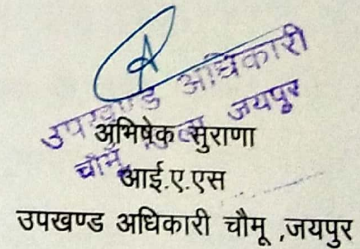 उपखण्ड अधिकारी
चौमूं, जयपुर
अभिषेक सुराणा
आई.ए.एस
उपखण्ड अधिकारी चौमू ,जयपुर